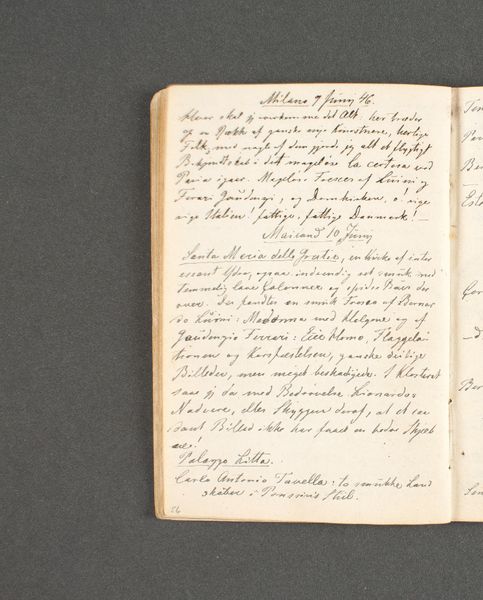 Milano 9 Juni 46.
Hvor skal jeg rumme det Alt. her træder
op en Række af ganske nye Konstnere, herlige
Folk, med nogle af dem gjorde jeg alt et flygtigt
Bekjendtskab i det mageløse la certosa ved
Pavia igaar. Mageløse Frescer af Luini og
Ferari Gaudenzi, og Domkirken, o rige
rige Italien! fattige, fattige Danmark! —
Mailand 10 Juni
Santa Maria delle Gratie, en Kirke af inter
essant Ydre, ogsaa indvendig set smuk med
temmelig lave Colonner og spidse Buer der
over. Der fandtes en smuk Fresco af Bernar
do Luini: Madonna med Helgene og af
Gaudenzio Ferrari: Ecce Homo, Flaggela
tionen og Korsfæstelsen, ganske deilige
Billeder, men meget beskadigede. I Klosteret
saae jeg da med Bedrøvelse Lionardos
Nadvere, eller Skyggen deraf, at et saa
dant Billed ikke har faaet en bedre Skjæb
ne!
Palazzo Litta.
Carlo Antonio Tavella: to smukke Land
skaber i Poussins Stiil.
56
Ber